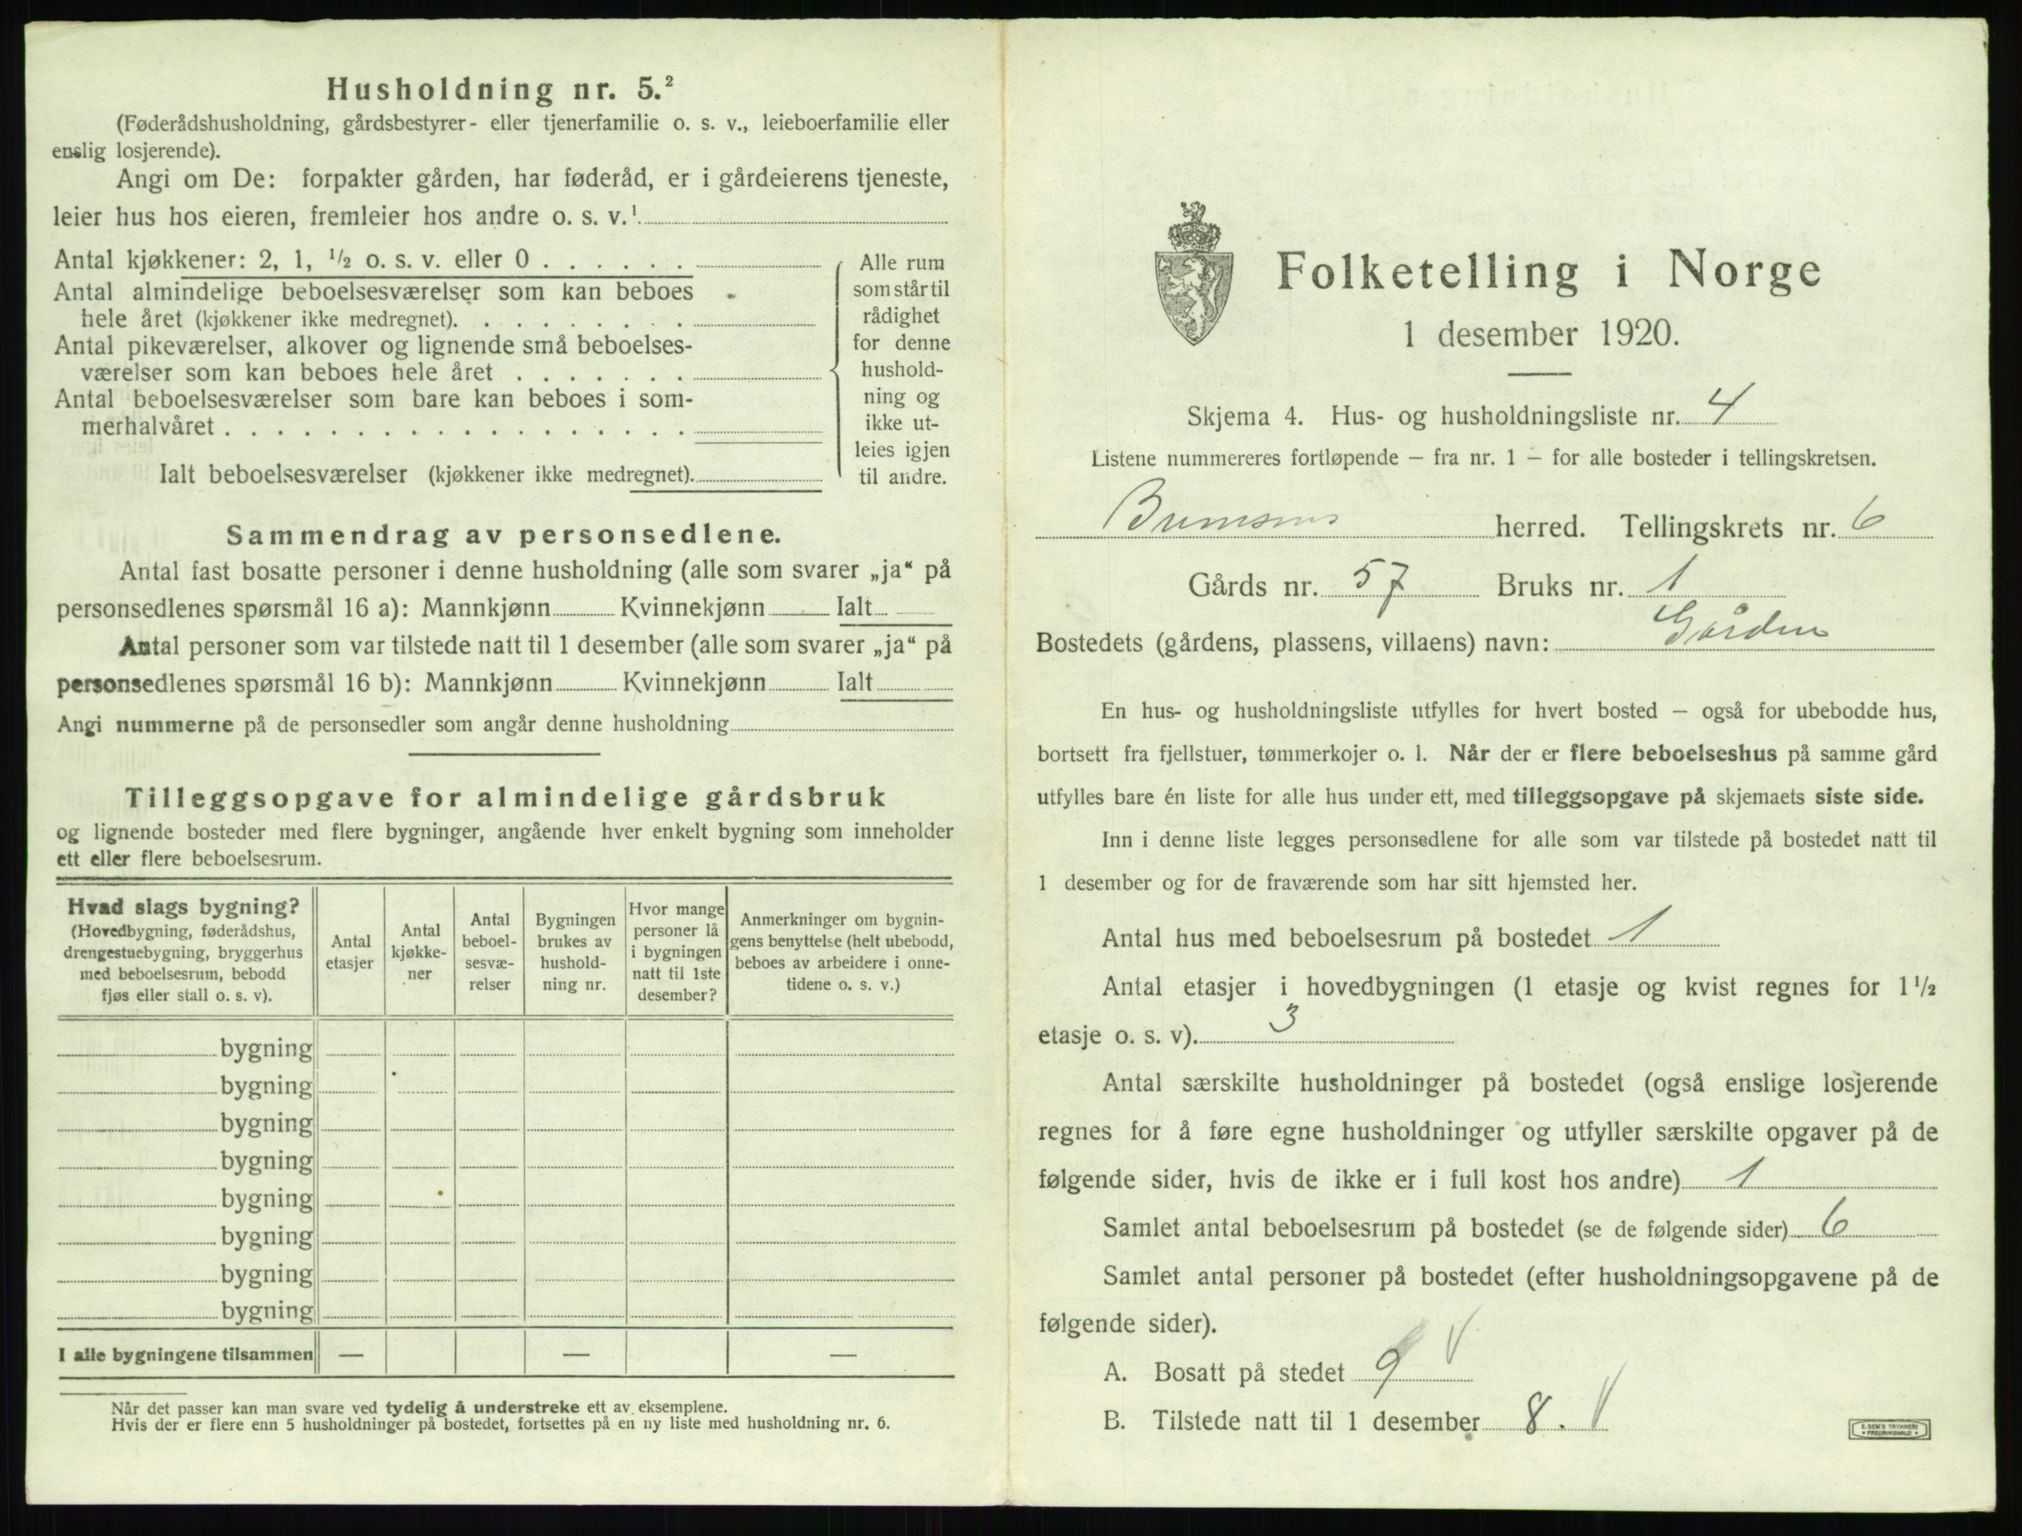 Husholdning nr. 5.²
(Føderådshusholdning, gårdsbestyrer- eller tjenerfamilie o. s. v., leieboerfamilie eller
enslig losjerende).
Angi om De: forpakter gården, har føderåd, er i gårdeierens tjeneste,
leier hus hos eieren, fremleier hos andre o. s. v.¹
Antal kjøkkener: 2, 1, ½ o. s. v. eller 0 . . . . . .
Antal almindelige beboelsesværelser som kan beboes
hele året (kjøkkener ikke medregnet). . . . . . . . .
Antal pikeværelser, alkover og lignende små beboelses-
værelser som kan beboes hele året . . . . . . .
Antal beboelsesværelser som bare kan beboes i som-
merhalvåret . . . . . . . . . . . . . . . . . .
Ialt beboelsesværelser (kjøkkener ikke medregnet).
Alle rum
som står til
rådighet
for denne
hushold-
ning og
ikke ut-
leies igjen
til andre.
Sammendrag av personsedlene.
Antal fast bosatte personer i denne husholdning (alle som svarer „ja“ på
personsedlenes spørsmål 16 a): Mannkjønn Kvinnekjønn Ialt
Antal personer som var tilstede natt til 1 desember (alle som svarer „ja“ på
personsedlenes spørsmål 16 b): Mannkjønn Kvinnekjønn Ialt
Angi nummerne på de personsedler som angår denne husholdning
Tilleggsopgave for almindelige gårdsbruk
og lignende bosteder med flere bygninger, angående hver enkelt bygning som inneholder
ett eller flere beboelsesrum.
Hvad slags bygning?
(Hovedbygning, føderådshus,
drengestuebygning, bryggerhus
med beboelsesrum, bebodd
fjøs eller stall o. s. v).
Antal
etasjer
Antal
kjøkke-
ner
Antal
beboel-
sesvæ-
relser
Bygningen
brukes av
hushold-
ning nr.
Hvor mange
personer lå
i bygningen
natt til 1ste
desember?
Anmerkninger om bygnin-
gens benyttelse (helt ubebodd,
beboes av arbeidere i onne-
tidene o. s. v.)
bygning
bygning
bygning
bygning
bygning
bygning
bygning
bygning
I alle bygningene tilsammen — — —
Når det passer kan man svare ved tydelig å understreke ett av eksemplene.
Hvis der er flere enn 5 husholdninger på bostedet, fortsettes på en ny liste med husholdning nr. 6.
Folketelling i Norge
1 desember 1920.
Skjema 4. Hus- og husholdningsliste nr. 4
Listene nummereres fortløpende – fra nr. 1 – for alle bosteder i tellingskretsen.
herred. Tellingskrets nr. 6
Gårds nr. 57 Bruks nr. 1
Bostedets (gårdens, plassens, villaens) navn: Gården
En hus- og husholdningsliste utfylles for hvert bosted – også for ubebodde hus,
bortsett fra fjellstuer, tømmerkojer o. l. Når der er flere beboelseshus på samme gård
utfylles bare én liste for alle hus under ett, med tilleggsopgave på skjemaets siste side.
Inn i denne liste legges personsedlene for alle som var tilstede på bostedet natt til
1 desember og for de fraværende som har sitt hjemsted her.
Antal hus med beboelsesrum på bostedet 1
Antal etasjer i hovedbygningen (1 etasje og kvist regnes for 1½
etasje o. s. v). 3
Antal særskilte husholdninger på bostedet (også enslige losjerende
regnes for å føre egne husholdninger og utfyller særskilte opgaver på de
følgende sider, hvis de ikke er i full kost hos andre) 1
Samlet antal beboelsesrum på bostedet (se de følgende sider) 6
Samlet antal personer på bostedet (efter husholdningsopgavene på de
følgende sider).
A. Bosatt på stedet 9 V
B. Tilstede natt til 1 desember 8. V
E. SEM'S TRYKKERI
FREDRIKSHALD